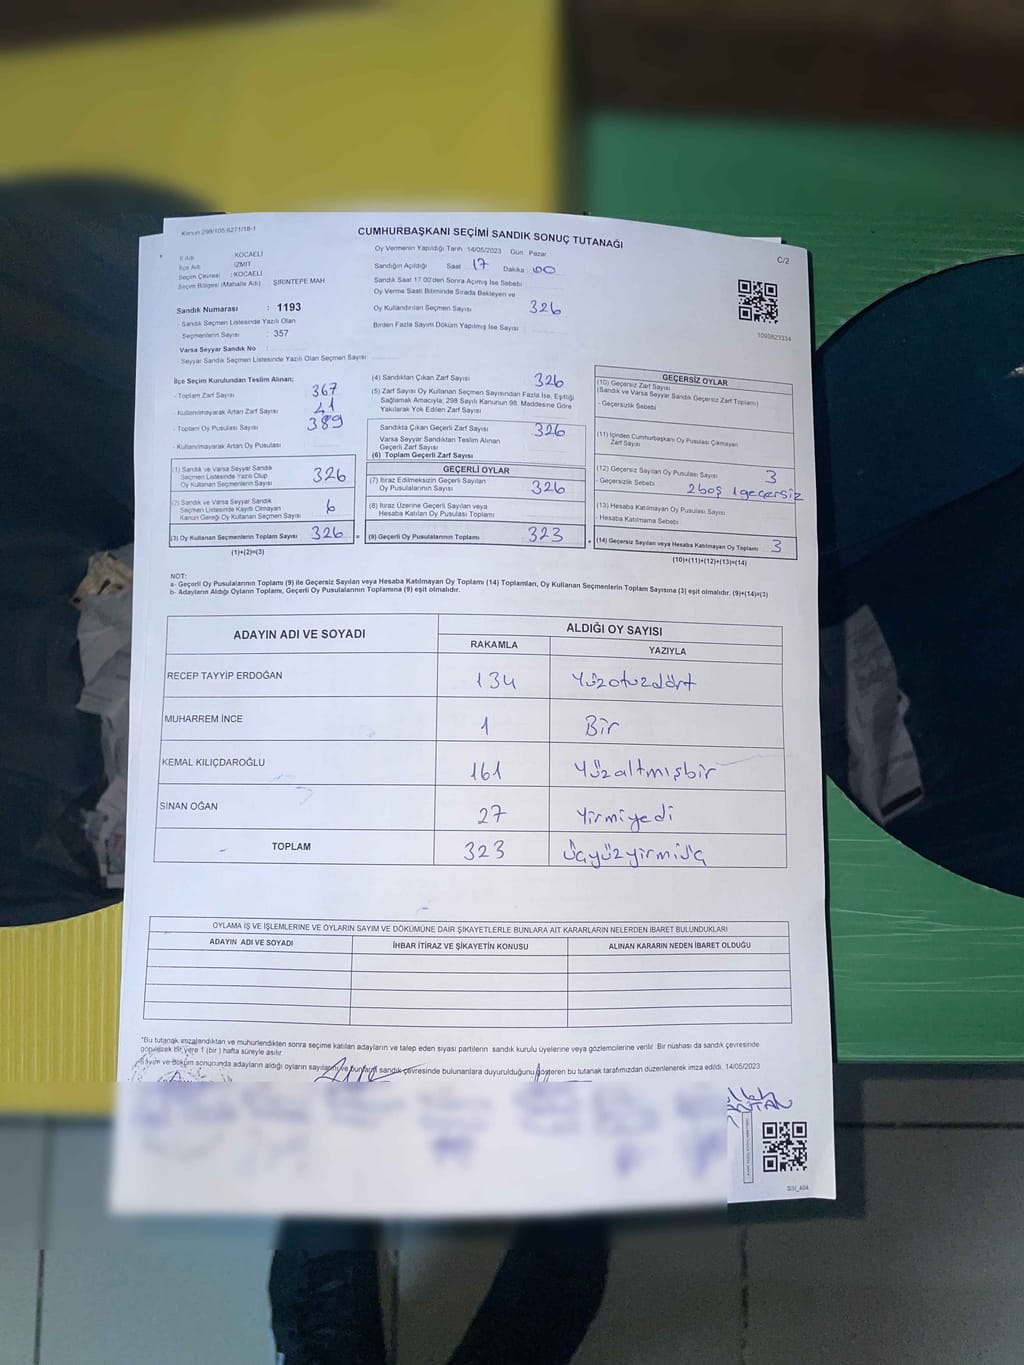 Kanun 298/105,6271/18-1
CUMHURBAŞKANI SEÇİMİ SANDIK SONUÇ TUTANAĞI
C/2
İl Adı : KOCAELİ
İlçe Adı : İZMİT
Seçim Çevresi : KOCAELİ
Seçim Bölgesi (Mahalle Adı) ŞİRİNTEPE MAH
Sandık Numarası : 1193
Sandık Seçmen Listesinde Yazılı Olan
Seçmenlerin Sayısı : 357
Varsa Seyyar Sandık No :
Seyyar Sandık Seçmen Listesinde Yazılı Olan Seçmen Sayısı
Oy Vermenin Yapıldığı Tarih 14/05/2023 Gün Pazar
Sandığın Açıldığı Saat 17 Dakika 00
Sandık Saat 17.00'den Sonra Açılmış İse Sebebi
Oy Verme Saati Bitiminde Sırada Bekleyen ve
Oy Kullandırılan Seçmen Sayısı 326
Birden Fazla Sayım Döküm Yapılmış İse Sayısı
1093623334
İlçe Seçim Kurulundan Teslim Alınan;
- Toplam Zarf Sayısı 367
- Kullanılmayarak Artan Zarf Sayısı 41
- Toplam Oy Pusulası Sayısı 389
- Kullanılmayarak Artan Oy Pusulası
(1) Sandık ve Varsa Seyyar Sandık
Seçmen Listesinde Yazılı Olup
Oy Kullanan Seçmenlerin Sayısı 326
(2) Sandık ve Varsa Seyyar Sandık
Seçmen Listesinde Kayıtlı Olmayan
Kanun Gereği Oy Kullanan Seçmen Sayısı 6
(3) Oy Kullanan Seçmenlerin Toplam Sayısı 326 =
(1)+(2)=(3)
(4) Sandıktan Çıkan Zarf Sayısı 326
(5) Zarf Sayısı Oy Kullanan Seçmen Sayısından Fazla İse, Eşitliği
Sağlamak Amacıyla; 298 Sayılı Kanunun 98. Maddesine Göre
Yakılarak Yok Edilen Zarf Sayısı
Sandıkta Çıkan Geçerli Zarf Sayısı 326
Varsa Seyyar Sandıktan Teslim Alınan
Geçerli Zarf Sayısı
(6) Toplam Geçerli Zarf Sayısı
GEÇERLİ OYLAR
(7) İtiraz Edilmeksizin Geçerli Sayılan
Oy Pusulalarının Sayısı 326
(8) İtiraz Üzerine Geçerli Sayılan veya
Hesaba Katılan Oy Pusulası Toplamı
(9) Geçerli Oy Pusulalarının Toplamı 323 +
GEÇERSİZ OYLAR
(10) Geçersiz Zarf Sayısı
(Sandık ve Varsa Seyyar Sandık Geçersiz Zarf Toplamı)
- Geçersizlik Sebebi
(11) İçinden Cumhurbaşkanı Oy Pusulası Çıkmayan
Zarf Sayısı
(12) Geçersiz Sayılan Oy Pusulası Sayısı 3
- Geçersizlik Sebebi 2 boş 1 geçersiz
(13) Hesaba Katılmayan Oy Pusulası Sayısı
- Hesaba Katılmama Sebebi
(14) Geçersiz Sayılan veya Hesaba Katılmayan Oy Toplamı 3
(10)+(11)+(12)+(13)=(14)
NOT:
a- Geçerli Oy Pusulalarının Toplamı (9) ile Geçersiz Sayılan veya Hesaba Katılmayan Oy Toplamı (14) Toplamları, Oy Kullanan Seçmenlerin Toplam Sayısına (3) eşit olmalıdır. (9)+(14)=(3)
b- Adayların Aldığı Oyların Toplamı, Geçerli Oy Pusulalarının Toplamına (9) eşit olmalıdır.
ADAYIN ADI VE SOYADI ALDIĞI OY SAYISI
RAKAMLA YAZIYLA
RECEP TAYYİP ERDOĞAN 134 Yüzotuzdört
MUHARREM İNCE 1 Bir
KEMAL KILIÇDAROĞLU 161 Yüzaltmışbir
SİNAN OĞAN 27 Yirmiyedi
TOPLAM 323 Üçyüzyirmiüç
OYLAMA İŞ VE İŞLEMLERİNE VE OYLARIN SAYIM VE DÖKÜMÜNE DAİR ŞİKAYETLERLE BUNLARA AİT KARARLARIN NELERDEN İBARET BULUNDUKLARI
ADAYIN ADI VE SOYADI İHBAR İTİRAZ VE ŞİKAYETİN KONUSU ALINAN KARARIN NEDEN İBARET OLDUĞU
*Bu tutanak imzalandıktan ve mühürlendikten sonra seçime katılan adayların ve talep eden siyasi partilerin sandık kurulu üyelerine veya gözlemcilerine verilir. Bir nüshası da sandık çevresinde
görülecek bir yere 1 (bir) hafta süreyle asılır.
Sayım ve Döküm sonucunda adayların aldığı oyların sayılarını ve bunların sandık çevresinde bulunanlara duyurulduğunu gösteren bu tutanak tarafımızdan düzenlenerek imza edildi. 14/05/2023